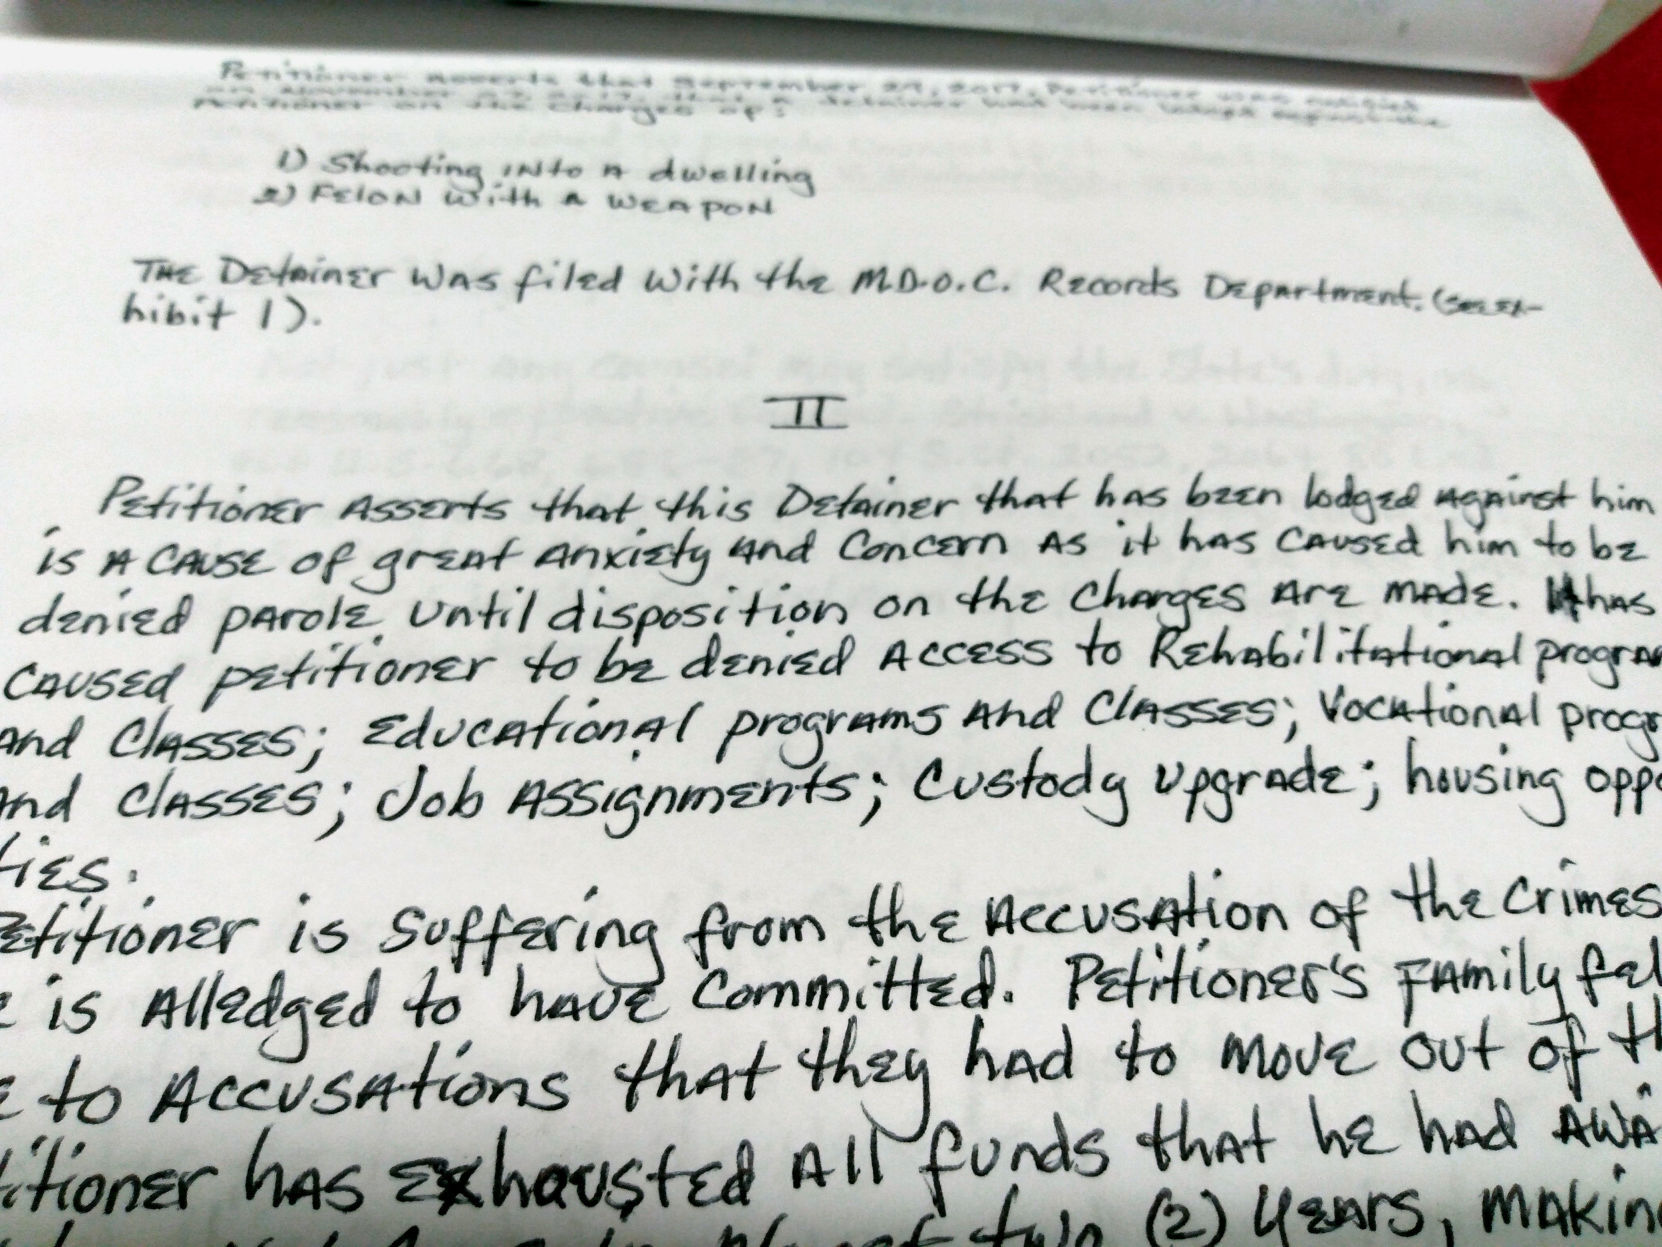 Petitioner asserts that September 27, 2017, Petitioner was notified
on November 27, 2017, that a detainer had been lodged against the
Petitioner on the charges of:
1) Shooting into a dwelling
2) Felon with a weapon
The Detainer was filed with the M.D.O.C. Records Department. (see Ex-
hibit 1).
II
Petitioner Asserts that this Detainer that has been lodged against him
is a cause of great anxiety and concern as it has caused him to be
denied parole until disposition on the charges are made. It has
caused petitioner to be denied access to Rehabilitational progra
and classes; Educational programs and classes; Vocational progr
and classes; Job Assignments; Custody upgrade; housing oppo
ties.
etitioner is suffering from the accusation of the crimes
e is alledged to have committed. Petitioner's family fel
e to accusations that they had to move out of th
titioner has exhausted all funds that he had awa
two (2) years, making